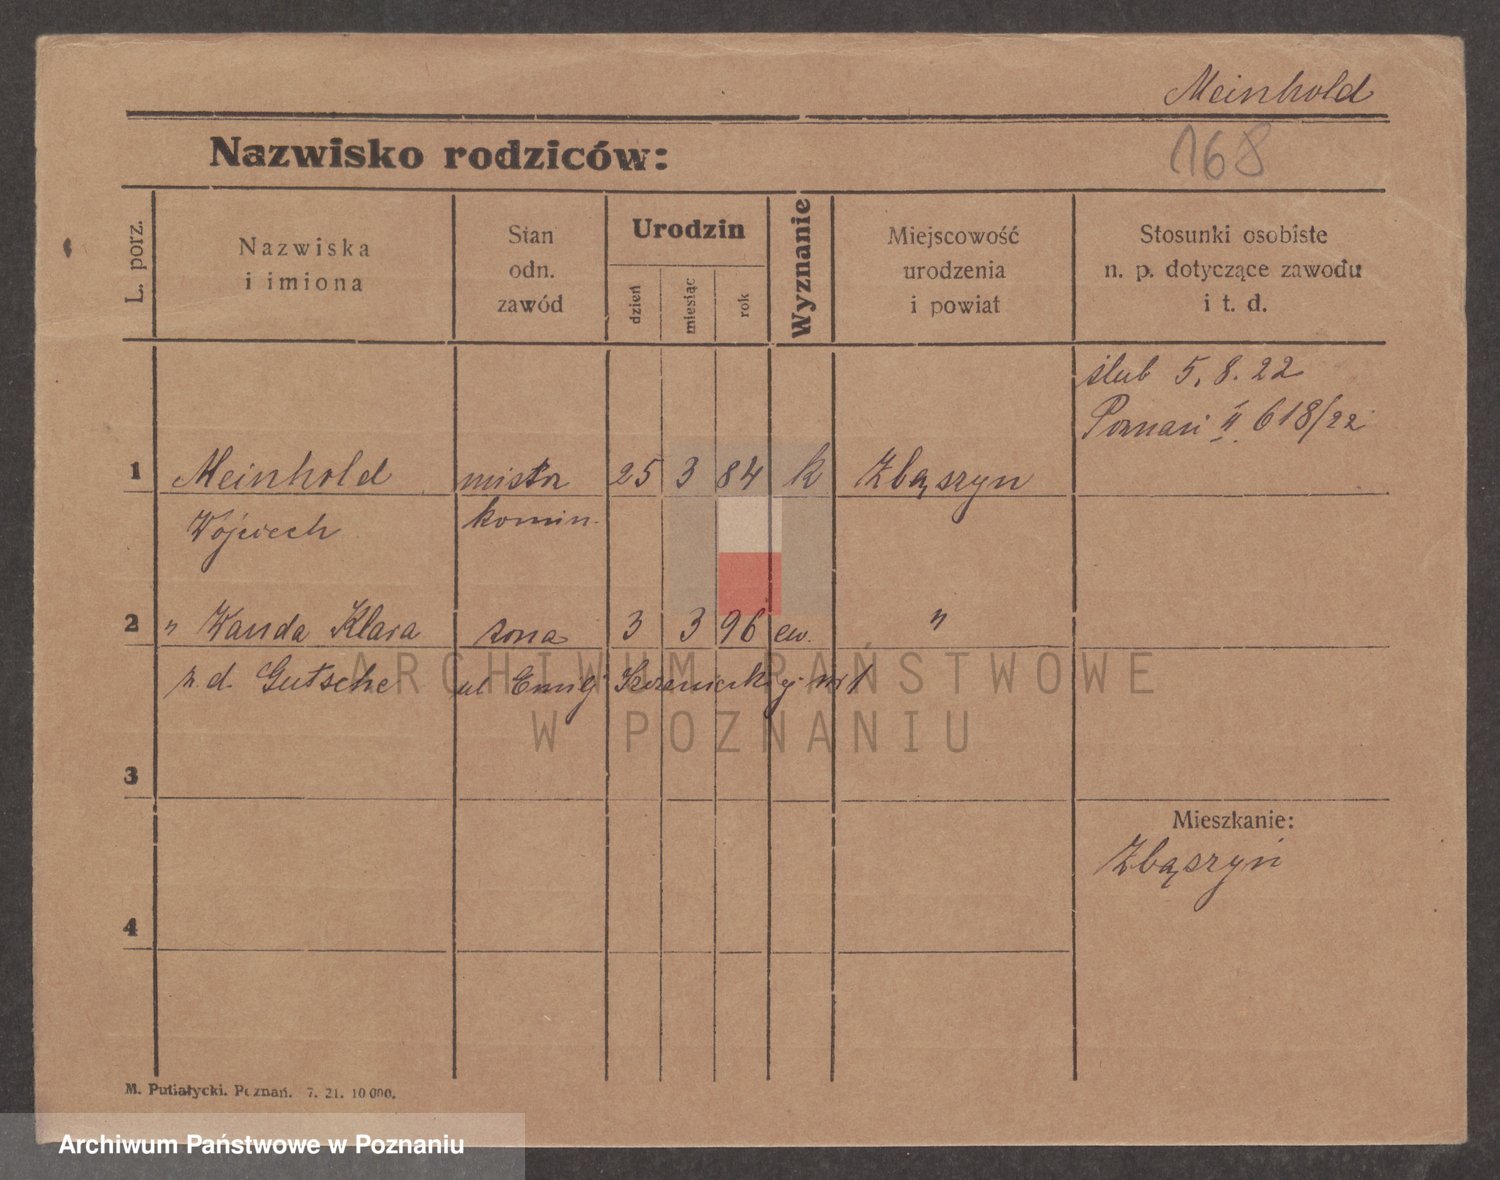 Meinhold
168
Nazwisko rodziców:
L. porz.
Nazwiska
i imiona
Stan
odn.
zawód
Urodzin
dzień
miesiąc
rok
Wyznanie
Miejscowość
urodzenia
i powiat
Stosunki osobiste
n. p. dotyczące zawodu
i t. d.
ślub 5. 8. 22
Poznań II 618/22
1 Meinhold mistrz 25 3 84 k Zbąszyn
Wojciech komin.
2 " Wanda Klara żona 3 3 96 ew. "
z. d. Gutsche ul Emilj Szczanieckiej nr 1
3
Mieszkanie:
Zbąszyń
4
M. Putiatycki. Poznań. 7. 21. 10 000.
ARCHIWUM PAŃSTWOWE
W POZNANIU
Archiwum Państwowe w Poznaniu